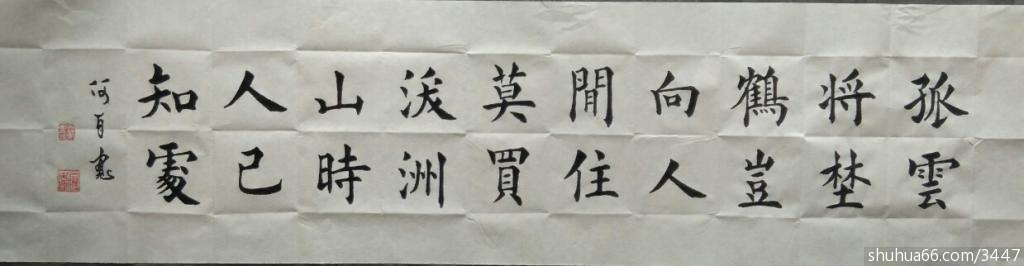 孤雲
将埜
鶴豈
向人
閒住
莫買
沃洲
山時
人已
知處
shuhua66.com/3447